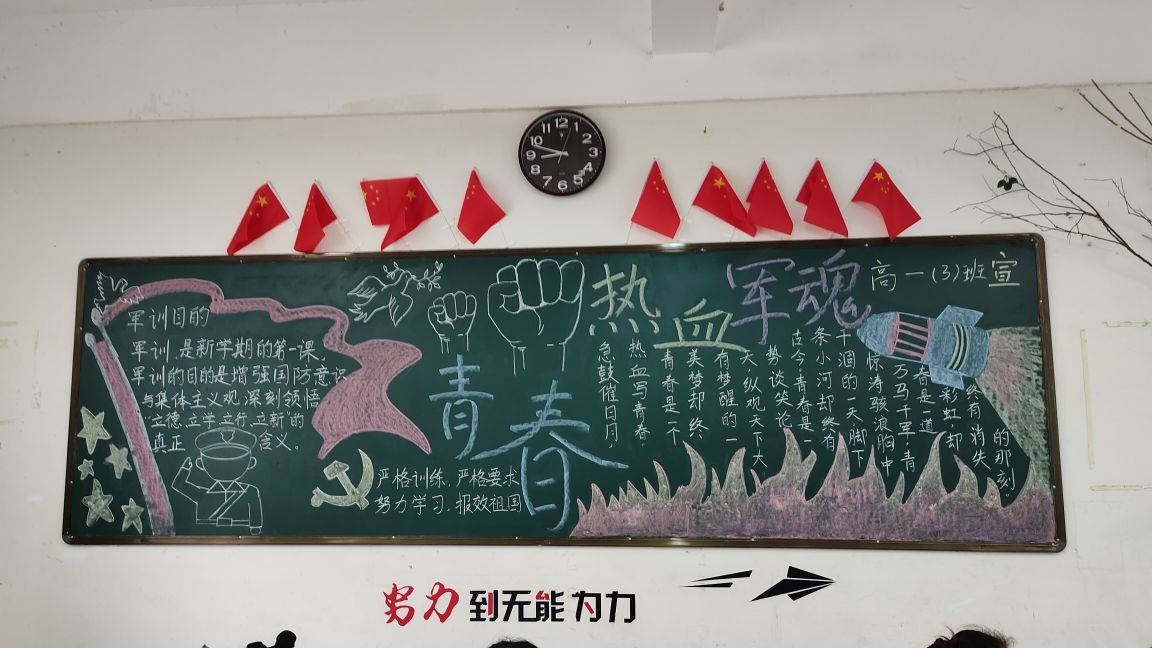 11 12 1
10 2
9 3
8 4
7 6 5
高一(3)班宣
热血军魂
军训目的
军训,是新学期的第一课,
军训的目的是增强国防意识
与集体主义观,深刻领悟
"立德,立学,立行,立新"的
真正 含义。
青春
严格训练,严格要求
努力学习,报效祖国
急鼓催日月
热血写青春
青春是一个
美梦却终
有梦醒的一
天,纵观天下大
势谈笑论
古今,青春是一
条小河却终有
干涸的一天,脚下
惊涛骇浪胸中
万马千军,青
春是一道
彩虹,却
终有消失
的那刻。
努力到无能为力